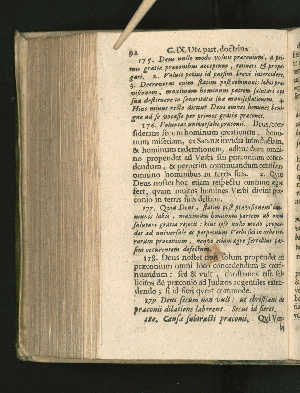 92 C. IX. Utr. part. doctrina
175. Deus nullo modo voluit præconium, a pri-
mis gratiæ præconibus acceptum, retineri & propa-
gari. 2. Valuit potius id passim brevi intercidere.
3. Decreverat enim statim post communem labis præ-
visionem, maximam hominum partem salutari ope
sua destituere in severitatis suæ manifestationem. 4.
Hinc minus recte dicunt Deus omnes homines beni-
gne ad se vocasse per primos gratiæ præcones.
176. Voluntas universalis præconii. Deus, con-
siderans secum hominum creationem, homi-
num miseriam, ex Satanæ invidia introductam,
& hominum redemtionem, adducitur omni-
no propendet ad Verbi sui præconium conce-
dendum, & perpetim continuandum cunctis
omnino hominibus in terris suis. 2. Quin
Deus noster hoc etiam respectu omnino æger
fert, quum multos homines Verbi divini præ-
conio in terris suis destitui.
177. Quia Deus, statim post prævisionem com-
munis labis, maximam hominum partem ab omni
salutari gratia rejecit: hinc ipse nullo modo propen-
det ad universale ac perpetuum Verbi sui in orbe ter-
rarum præconium, neque etiam ægre fert illius pas-
sim occurrentem defectum.
178. Deus noster non solum propendet ad
præconium omni loco concedendum & conti-
nuandum: sed & vult, christianos esse sol-
licitos de præconio ad Judæos ac gentiles exten-
dendo; si id fieri queat commode.
179. Deus secum non vult: ut christiani de
præconii dilatione laborent. Secus id fieret.
180. Causa subtracti præconii. Qui Ver-
bi